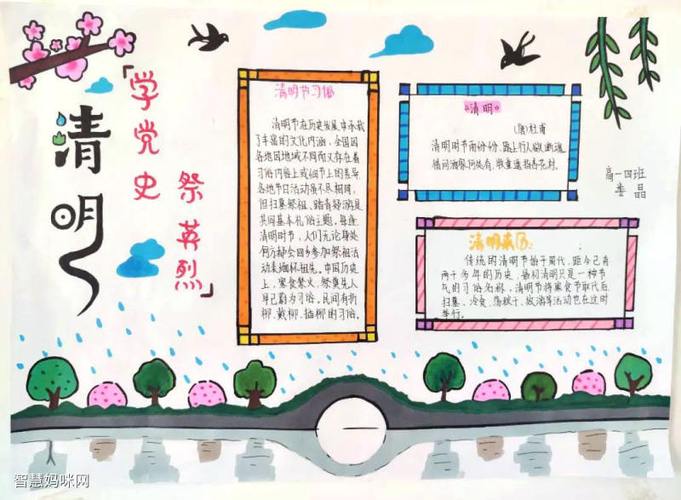 清明
「学党史
祭英烈」
清明节习俗
清明节在历史发展中承载
了丰富的文化内涵,全国因
各地因地域不同而又存在着
习俗内容上或细节上的差异
各地节日活动虽不尽相同,
但扫墓祭祖、踏青郊游是
共同基本礼俗主题,每逢
清明时节,人们无论身处
何方都会回乡参加祭祖活
动表缅怀祖先。中国历史
上,寒食禁火,祭奠先人
早已蔚为习俗。民间有折
柳、戴柳、插柳的习俗.
《清明》
(唐)杜甫
清明时节雨份份,路上行人欲断魂
借问酒家何处有,牧童遥指杏花村.
高一四班
李晶
清明来历:
传统的清明节始于周代,距今已有
两千多年的历史,最初清明只是一种节
气的习俗名称,清明节将寒食节取代后
扫墓、冷食、荡秋千、放等活动也在这时
举行。
智慧妈咪网